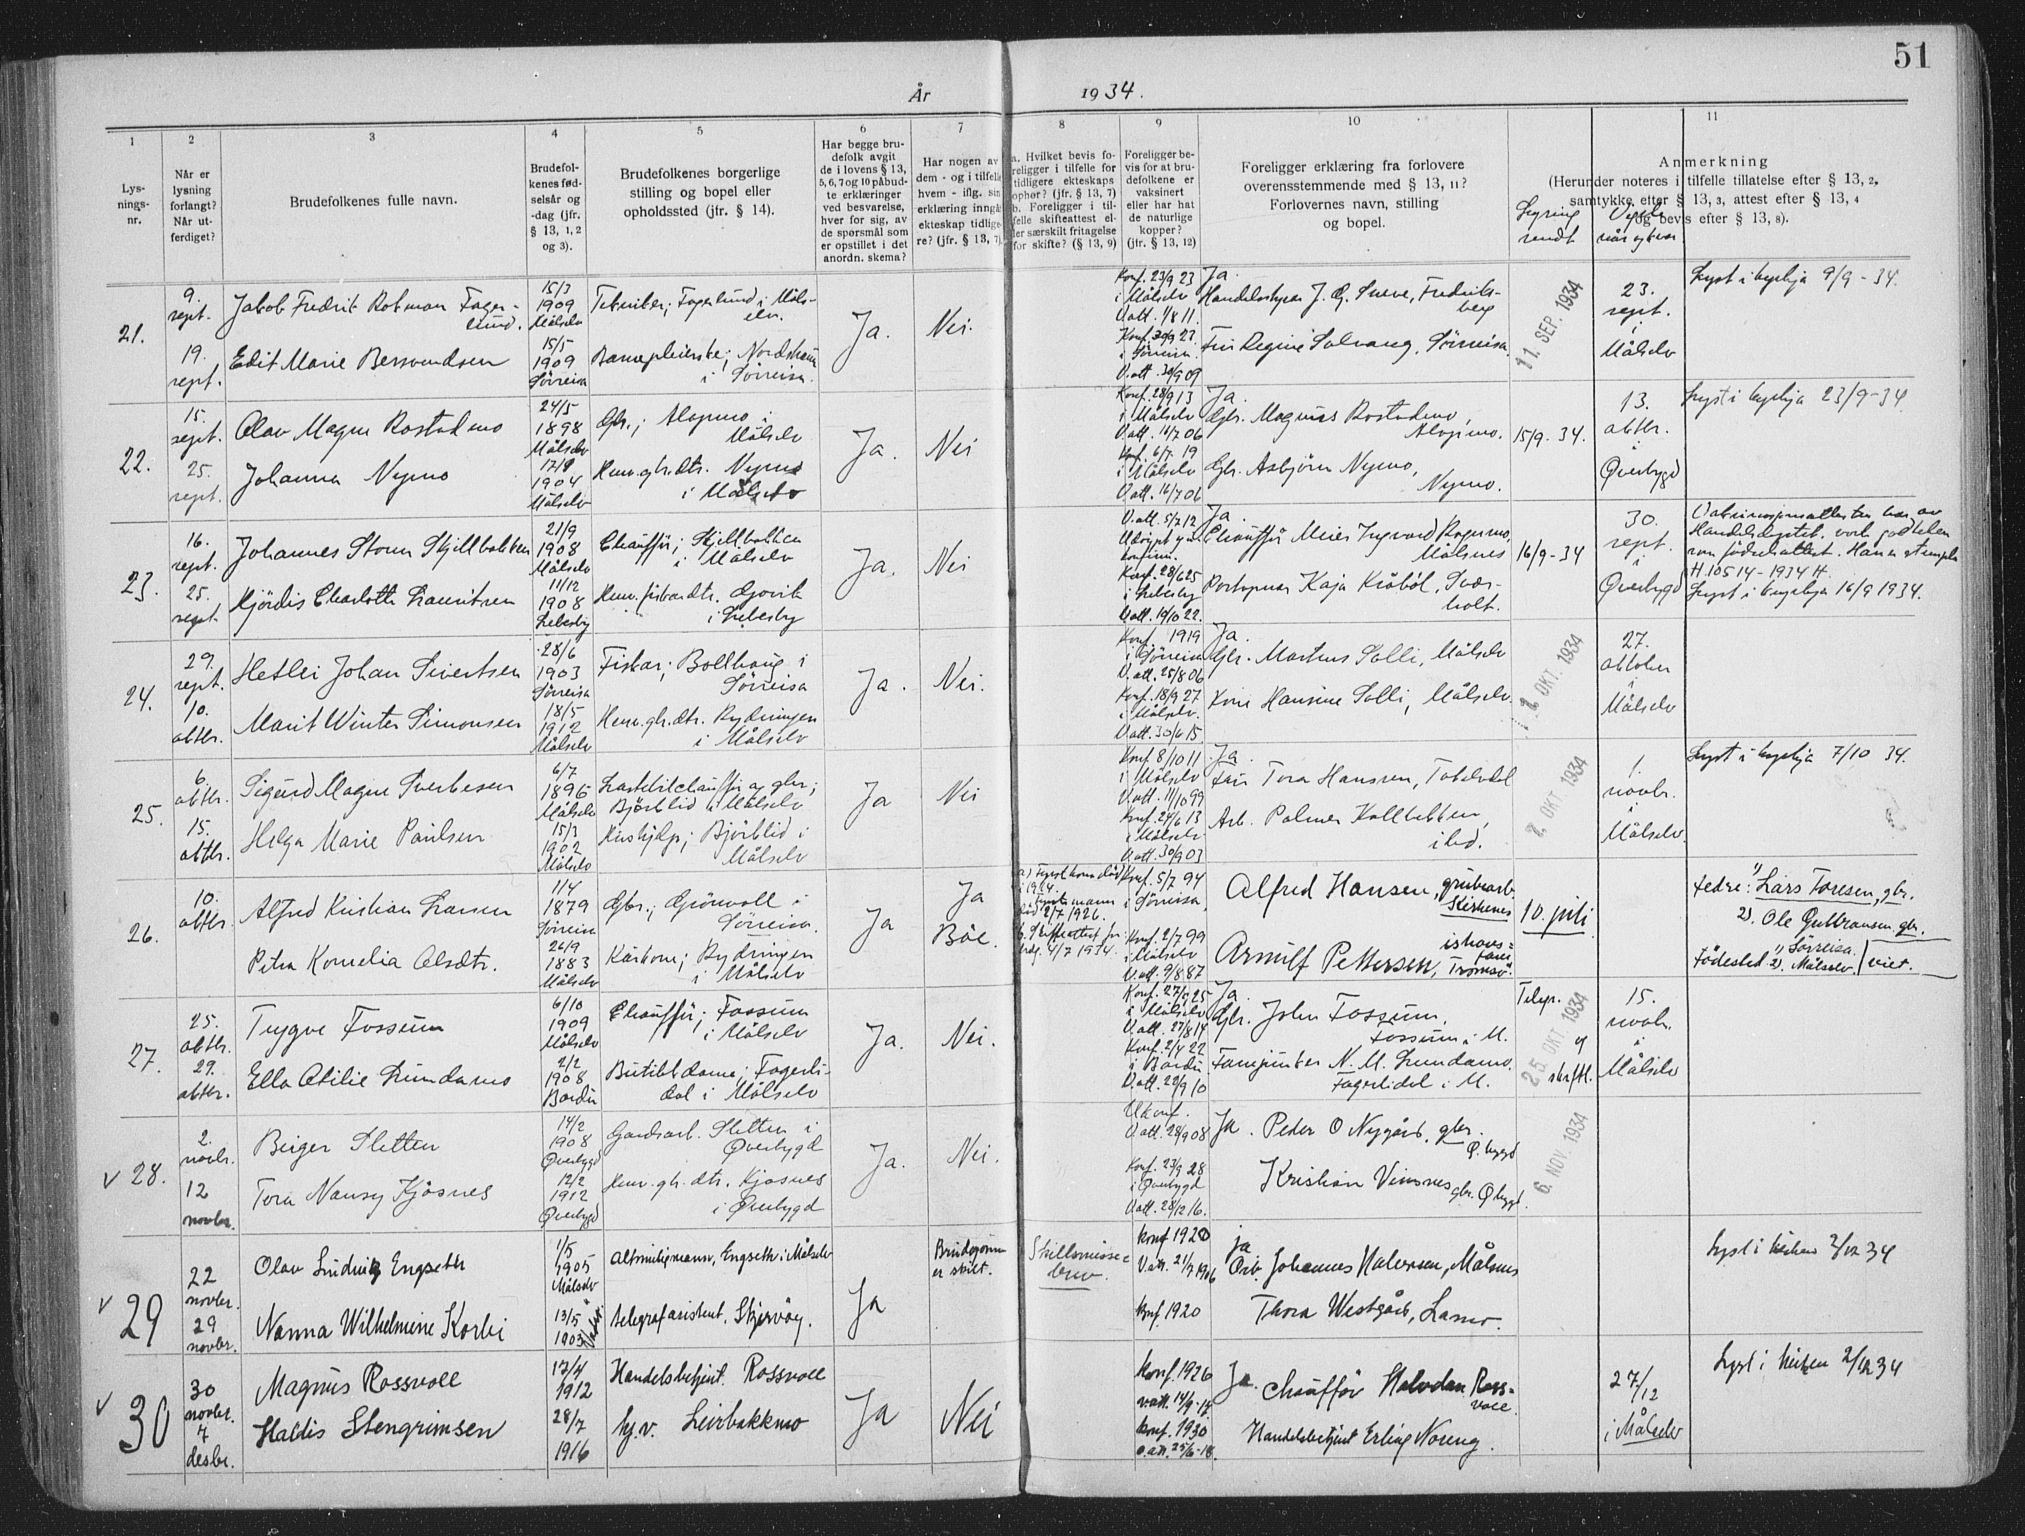 51
År 1934.
1 2 3 4 5 6 7 8 9 10 11
Lys-
nings-
nr.
Når er
lysning
forlangt?
Når ut-
ferdiget?
Brudefolkenes fulle navn.
Brudefol-
kenes fød-
selsår og
-dag (jfr.
§ 13, 1, 2
og 3).
Brudefolkenes borgerlige
stilling og bopel eller
opholdssted (jfr. § 14).
Har begge bru-
defolk avgit
de i lovens § 13,
5, 6, 7 og 10 påbud-
te erklæringer
ved besvarelse,
hver for sig, av
de spørsmål som
er opstillet i det
anordn. skema?
Har nogen av
dem - og i tilfelle
hvem - iflg. sin
erklæring inngå
ekteskap tidlige-
re? (jfr. § 13, 7)
a. Hvilket bevis fo-
religger i tilfelle for
tidligere ekteskaps
ophør? (jfr. § 13, 7)
b. Foreligger i til-
felle skifteattest el-
ler særskilt fritagelse
for skifte? (§ 13, 9)
Foreligger be-
vis for at bru-
defolkene er
vaksinert
eller har hat
de naturlige
kopper?
(jfr. § 13, 12)
Foreligger erklæring fra forlovere
overensstemmende med § 13, 11?
Forlovernes navn, stilling
og bopel.
Lysning
sendt
Anmerkning
(Herunder noteres i tilfelle tillatelse efter § 13, 2,
samtykke efter § 13, 3, attest efter § 13, 4
og bevis efter § 13, 8).
Viede
når og hvor
21.
9.
sept.
19.
sept.
Jakob Fredrik Rotman Fager-
lund.
Edit Marie Bersvendsen
15/3
1909
Målselv
15/5
1909
Sørreisa
Tekniker; Fagerlund i Måls-
elv.
Barnepleierske; Nordstraum
i Sørreisa.
Ja.
Nei.
Konf. 23/9 23
i Målselv
V.att. 1/8 11.
i Sørreisa.
V.att. 30/9 09
Ja.
Handelsstyrer J. G. Sneve, Fredriks-
berg
Fru Regine Solvang, Sørreisa.
11. SEP. 1934
23.
sept.
i
Målselv
Lyst i kyrkja 9/9 - 34.
22.
15.
sept.
25.
sept.
Olav Magne Rostadmo
Johanna Nymo
24/5
1898
Målselv
1904
Målselv
Gbr.; Alapmo i
Målselv
Hjemv. gbr.dtr. Nymo
i Målselv
Ja.
Nei
Konf. 28/9 13
i Målselv
V.att. 14/7 06
Konf. 6/7 19
i Målselv
V.att. 16/7 06
Ja.
Gbr. Magnus Rostadmo,
Alapmo.
Gbr. Asbjørn Nymo,
Nymo.
15/9 - 34.
13.
oktbr.
i
Øverbygd
Lyst i kyrkja 23/9 - 34.
23.
16.
sept.
25.
sept.
Johannes Storm Skjellbakken
Hjördis Charlotte Lauritsen
21/9
1908
Målselv
11/12
1908
Lebesby
Chauffør; Skjellbakken
i Målselv
Hjemv. fiskardtr. Gjövik
i Lebesby
Ja.
Nei
V.att. 5/7 12
konfirm.
Konf. 28/6 25
i Lebesby
V.att. 19/10 22.
Ja.
Chauffør Meier Ingvard Rognmo,
Målsnes
Postopnar Kaja Kråböl, Svar-
holt.
16/9 - 34
30.
sept.
i
Øverbygd
H. 10514 - 1934 H.
Lyst i kyrkja 16/9 1934.
24.
29.
sept.
10.
oktbr.
Hetlei Johan Sivertsen
Marit Winter Simonsen
28/6
1903
Sørreisa
18/5
1912
Målselv
Fiskar; Bolthaug i
Sørreisa
Hjemv. gbr.dtr. Rydningen
i Målselv
Ja.
Nei.
Konf. 1919
i Sørreisa
V.att. 25/8 06
Konf. 18/9 27
i Målselv.
V.att. 30/6 15
Ja.
Gbr. Martens Solli, Målselv
Kone Hansine Solli, Målselv
2 OKT. 1934
27.
oktober
i
Målselv
25.
6.
oktbr.
15.
oktbr.
Sigurd Magne Sverkesen
Helga Marie Paulsen
6/7
1896
Målselv
15/3
1902
Målselv
Lastebilchauffør og gbr;
Bjørklid i Målselv
Hushjelp; Bjørklid i
Målselv
Ja
Nei
Konf. 8/10 11
i Målselv
V.att. 11/10 99
Konf. 24/6 13
i Målselv
V.att. 30/9 03
Ja.
Fru Tora Hansen, Takeldal
Arb. Palmer Kolbekken,
i bid.
2. OKT 1934
1.
novbr.
i
Målselv.
Lyst i kyrkja 7/10 34.
26.
10.
oktbr.
Alfred Kristian Larsen
Petra Kornelia Olsdtr.
1/4
1879
Sørreisa
26/9
1883
Målselv
Gbr.; Grönvoll i
Sørreisa.
Kårkone; Rydningen
i Målselv
Ja
Ja
Båe.
i 1924.
død 2/7 1926.
4/7 1934.
Konf. 5/7 94
i Sørreisa.
Konf. 2/7 99
i Målselv
V.att. 9/8 87
Alfred Hansen, grubearb.
Kirkenes
Arnulf Pettersen, ishavs-
farer
Tromsø.
10. juli
Fedre: 1) Lars Toresen, gbr.
2). Ole Gulbransen gbr.
Fødested 1) Sørreisa.
2). Målselv. viet.
27.
25.
oktbr.
29.
oktbr.
Trygve Fossum
Ella Otilie Lundamo
6/10
1909
Målselv
2/2
1908
Bardu
Chauffør; Fossum
i Målselv
Butikkdame; Fagerli-
dal i Målselv
Ja.
Nei.
Konf. 27/9 25
i Målselv
V.att. 27/8 14
Konf. 2/4 22
i Bardu
V.att. 22/9 10
Ja.
Gbr. John Fossum,
Fossum i M.
Fanejunker N. M. Lundamo
Fagerlidal i M.
Telegr.
og
skriftl.
25. OKT 1934
15.
novbr.
i
Målselv
v 28.
2.
novbr.
12
novbr.
Birger Sletten
Tora Nansy Kjosnes
14/2
1908
Øverbygd
12/2
1912
Øverbygd
Gardsarb. Sletten i
Øverbygd
Hjemv. gbr. dtr. Kjosnes
i Øverbygd
Ja.
Nei.
Ukonf.
V.att. 28/9 08
Konf. 23/9 28
i Øverbygd
V.att. 28/12 16.
Ja. Peder O Nygård, gbr.
Ø. bygd
Kristian Vinsnes gbr. Ø bygd.
6. NOV. 1934
v 29
22
novbr.
29
novbr.
Olav Ludvig Engseth
Nanna Wilhelmine Korbi
1/5
1905
Målselv
13/5
1903
Altmuligmann, Engseth i Målselv
telegrafasistent, Skjervøy.
Ja
Brudgom
er skilt.
Skilsmisse-
brev.
Konf 1920
V.att. 21/7 1906
Konf. 1920
ja
Arb. Johannes Halvorsen, Målsnes
Thora Westgård, Lanes.
Lyst i kirken 2/12 34
v 30
30
novbr.
7
desbr.
Magnus Rossvoll
Haldis Stengrimsen
17/4
1912
28/7
1916
Handelsbetjent. Rossvoll
hj.v. Leirbakkmo
Ja
Nei
Konf. 1926
vatt. 14/9 - 17
konf. 1930
v.att. 25/6 - 18.
Ja. Chauffør Halvdan Ross-
voll.
Handelsbetjent Erling Noreng.
27/12
i Målselv
Lyst i kirken 2/12 34